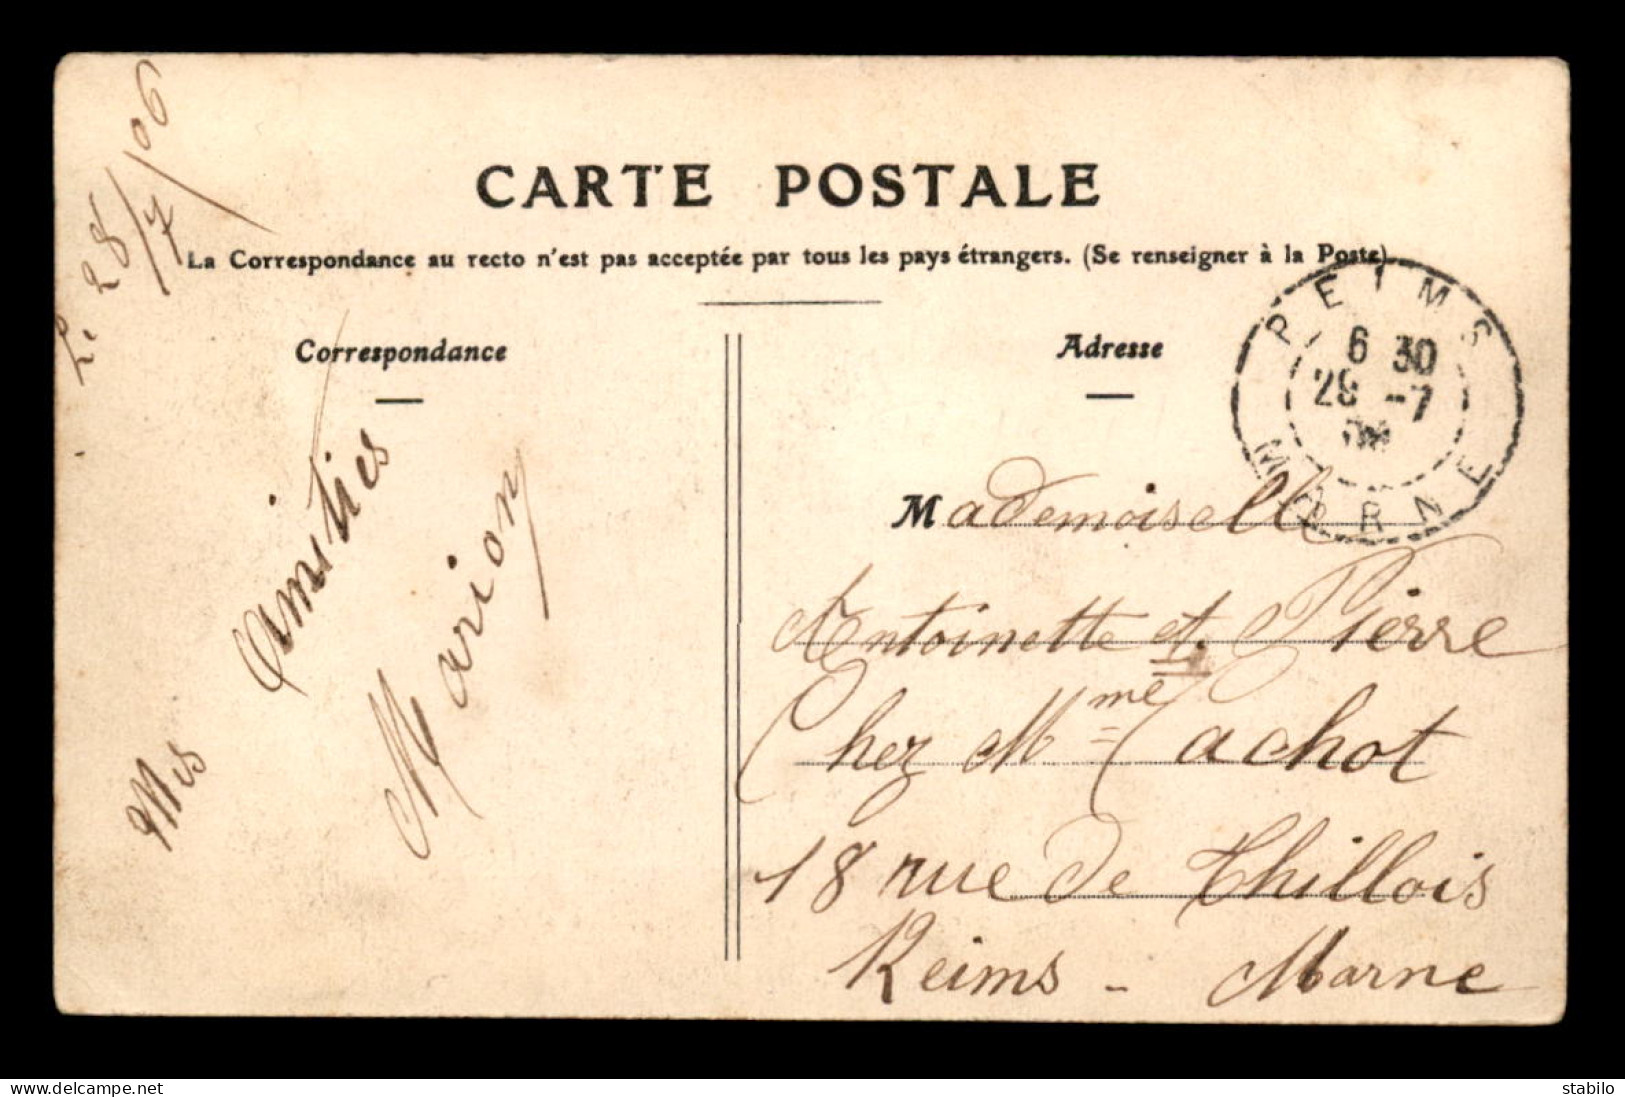 L. 28/7/06
CARTE POSTALE
La Correspondance au recto n'est pas acceptée par tous les pays étrangers. (Se renseigner à la Poste).
Correspondance
Mes amitiés
Marion
Adresse
REIMS
6 30
28 -7
MARNE
Mademoiselle
Antoinette et Pierre
Chez Mme Cachot
18 rue de Thillois
Reims - Marne
delcampe.net
stabilo